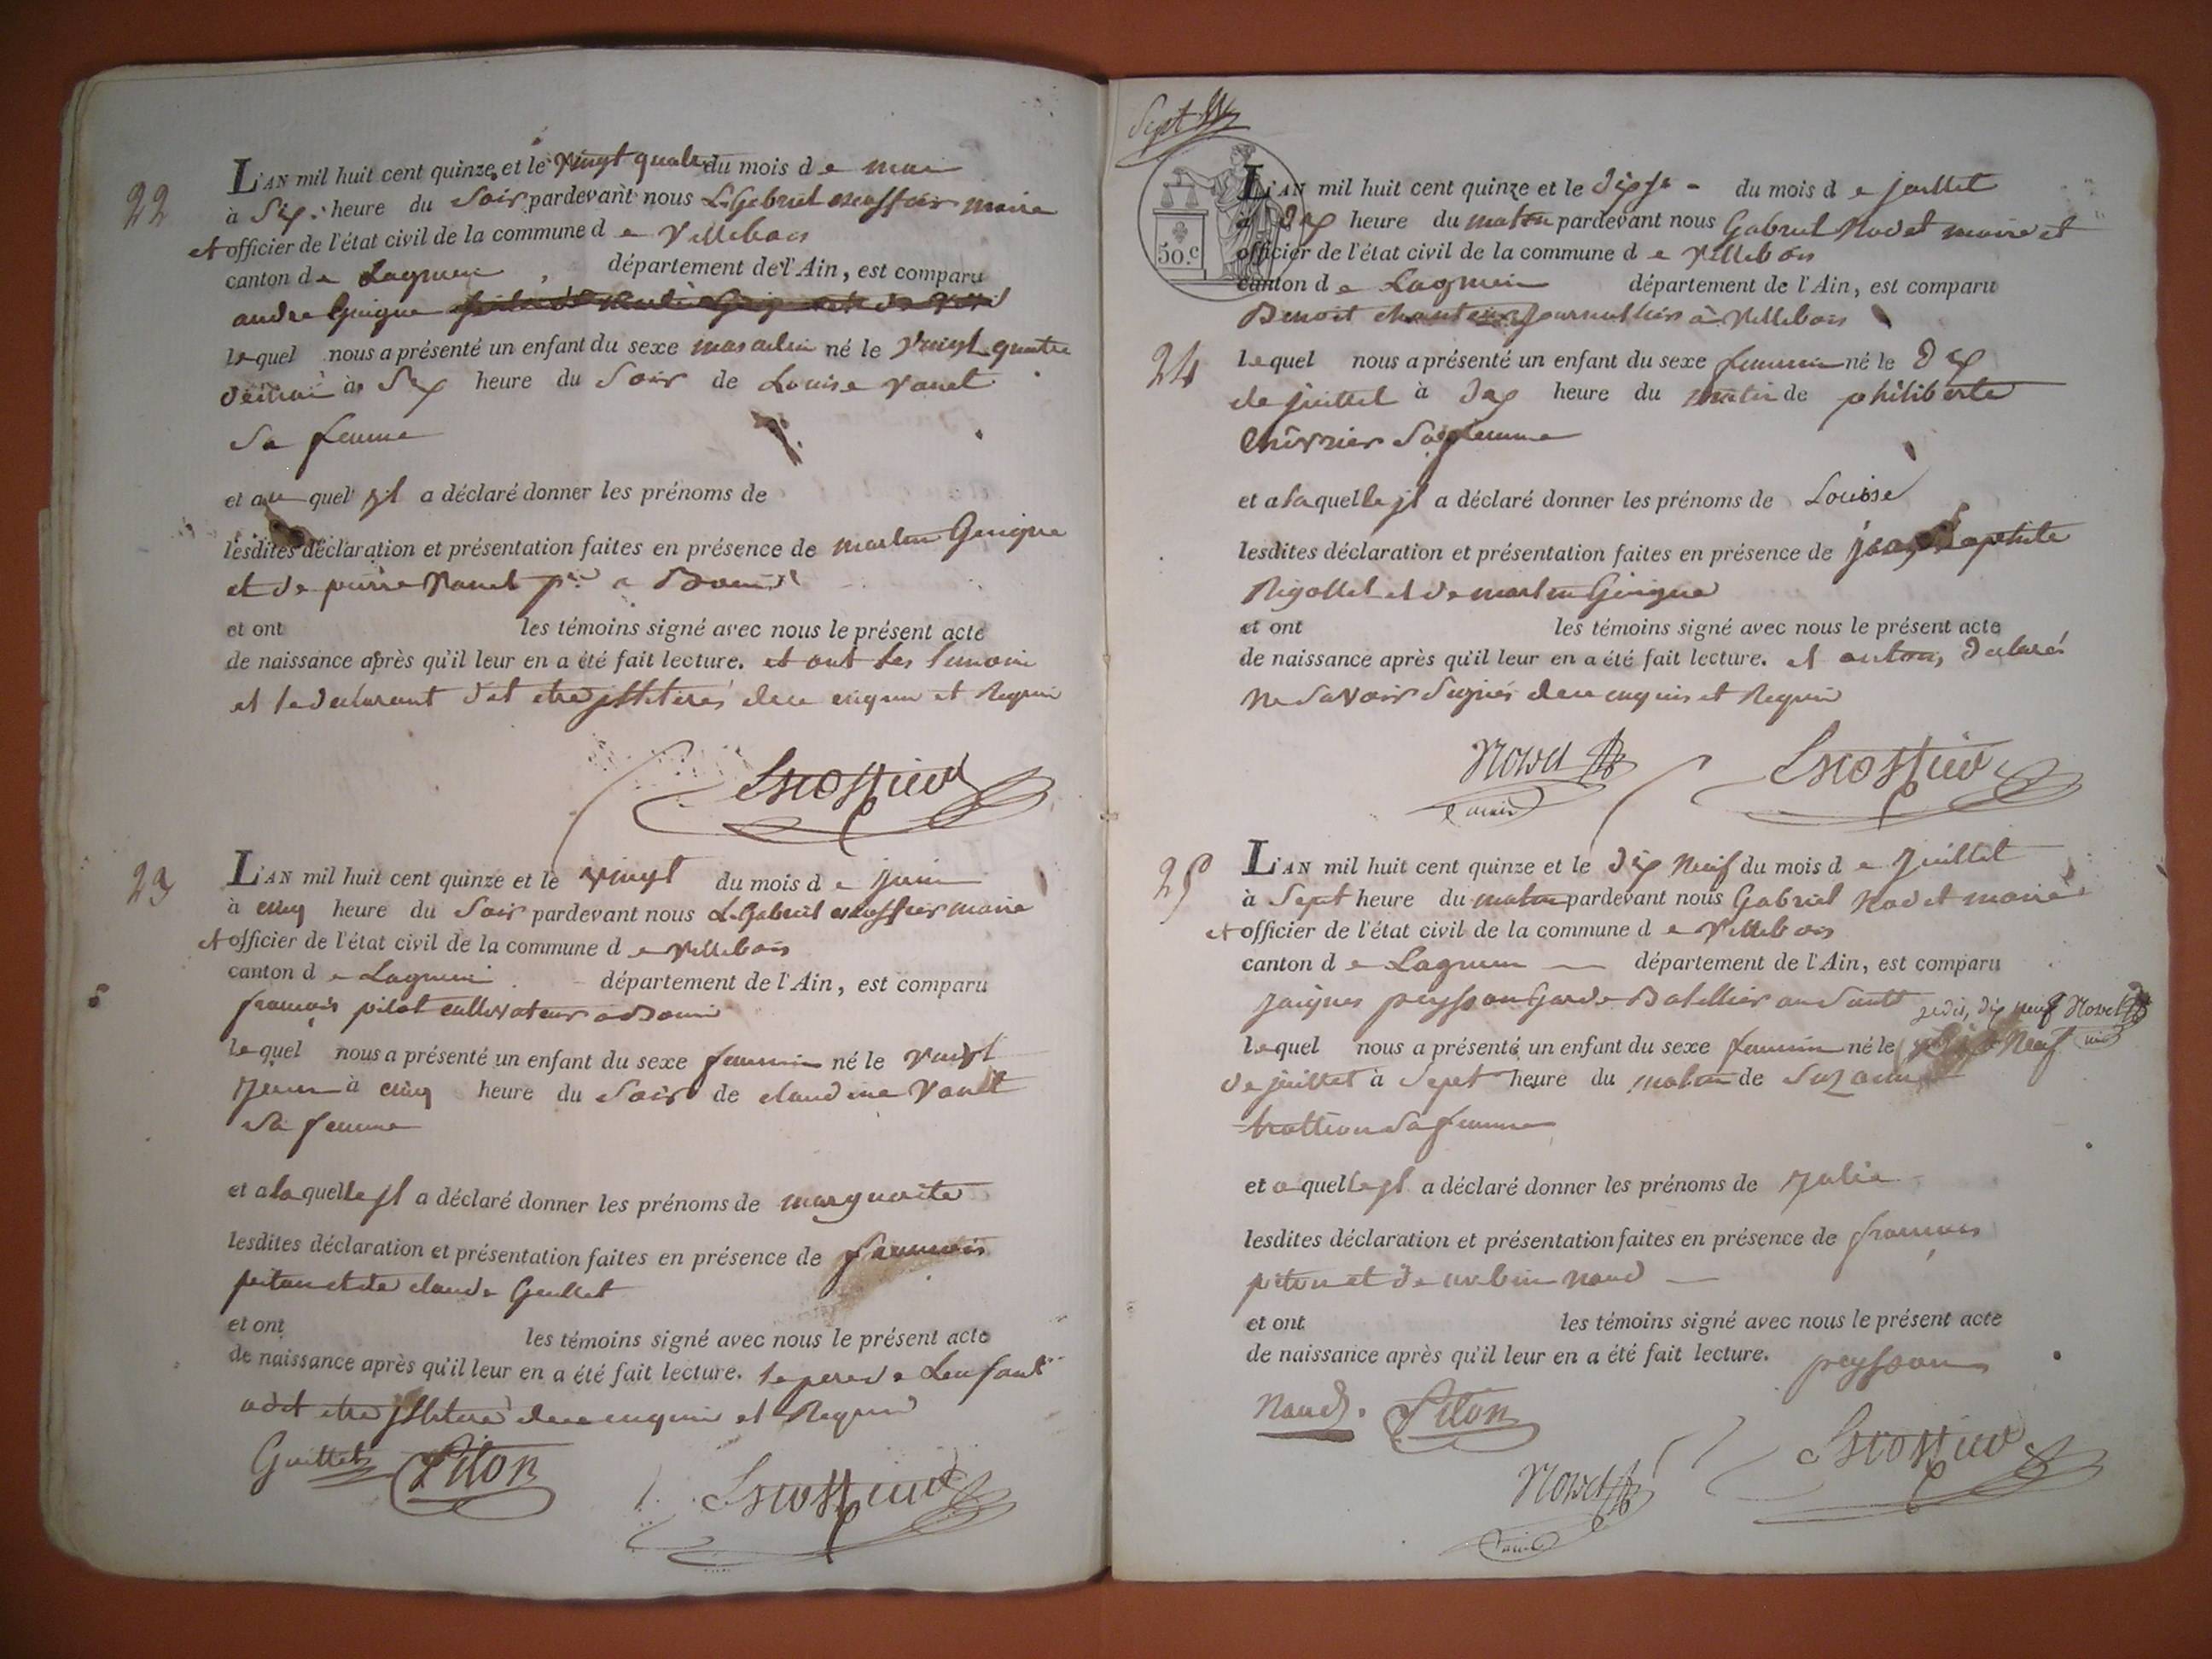 22
L'AN mil huit cent quinze et le vingt quatre du mois de mai
à Six heure du Soir pardevant nous L. Gabriel escoffier maire
et officier de l'état civil de la commune de Villebois
canton de Lagnieu département de l'Ain, est comparu
andre Guigue
lequel nous a présenté un enfant du sexe masculin né le vingt quatre
de mai à Six heure du Soir de Louise vanet
Sa femme
et au quel jl a déclaré donner les prénoms de
lesdites déclaration et présentation faites en présence de martin Guigue
et de pierre vanet
et ont les témoins signé avec nous le présent acte
de naissance après qu'il leur en a été fait lecture. et ont les temoin
et le declarant dit etre jlliteré de ce enquis et Requis
Escoffier
23
L'AN mil huit cent quinze et le vingt du mois de juin
à cinq heure du Soir pardevant nous L. Gabriel escoffier maire
et officier de l'état civil de la commune de Villebois
canton de Lagnieu département de l'Ain, est comparu
francois pilot cultivateur a Bouis
lequel nous a présenté un enfant du sexe feminin né le vingt
juin à cinq heure du Soir de claudine Vanet
Sa femme
et a la quelle jl a déclaré donner les prénoms de marguerite
lesdites déclaration et présentation faites en présence de francois
piton et de claude Guillet
et ont les témoins signé avec nous le présent acte
de naissance après qu'il leur en a été fait lecture. le pere de Lenfant
a dit etre jlliteré de ce enquis et Requis
Guillet Piton Escoffier
Sept
50.c
L'AN mil huit cent quinze et le du mois de juillet
à dix heure du matin pardevant nous Gabriel Novet maire et
officier de l'état civil de la commune de Villebois
canton de Lagnieu département de l'Ain, est comparu
Benoit journallier à Villebois
24
lequel nous a présenté un enfant du sexe feminin né le dix
de juillet à dix heure du matin de philiberte
Chivrier Sa femme
et a la quelle jl a déclaré donner les prénoms de Louise
lesdites déclaration et présentation faites en présence de jean Baptiste
Rigollet et de martin Guigue
et ont les témoins signé avec nous le présent acte
de naissance après qu'il leur en a été fait lecture. et ont declaré
ne Savoir Signer de ce enquis et Requis
Novet Escoffier
maire
25
L'AN mil huit cent quinze et le dix Neuf du mois de juillet
à Sept heure du matin pardevant nous Gabriel Novet maire
et officier de l'état civil de la commune de Villebois
canton de Lagnieu département de l'Ain, est comparu
jacques peysson Garde Batellier au Sault je dis, dix neuf Novet
lequel nous a présenté un enfant du sexe feminin né le Neuf
de juillet à Sept heure du matin de Suzanne
trottion Sa femme
et a quelle jl a déclaré donner les prénoms de julie
lesdites déclaration et présentation faites en présence de francois
piton et de naud
et ont les témoins signé avec nous le présent acte
de naissance après qu'il leur en a été fait lecture. peysson
Naud. Piton
Novet Escoffier
maire